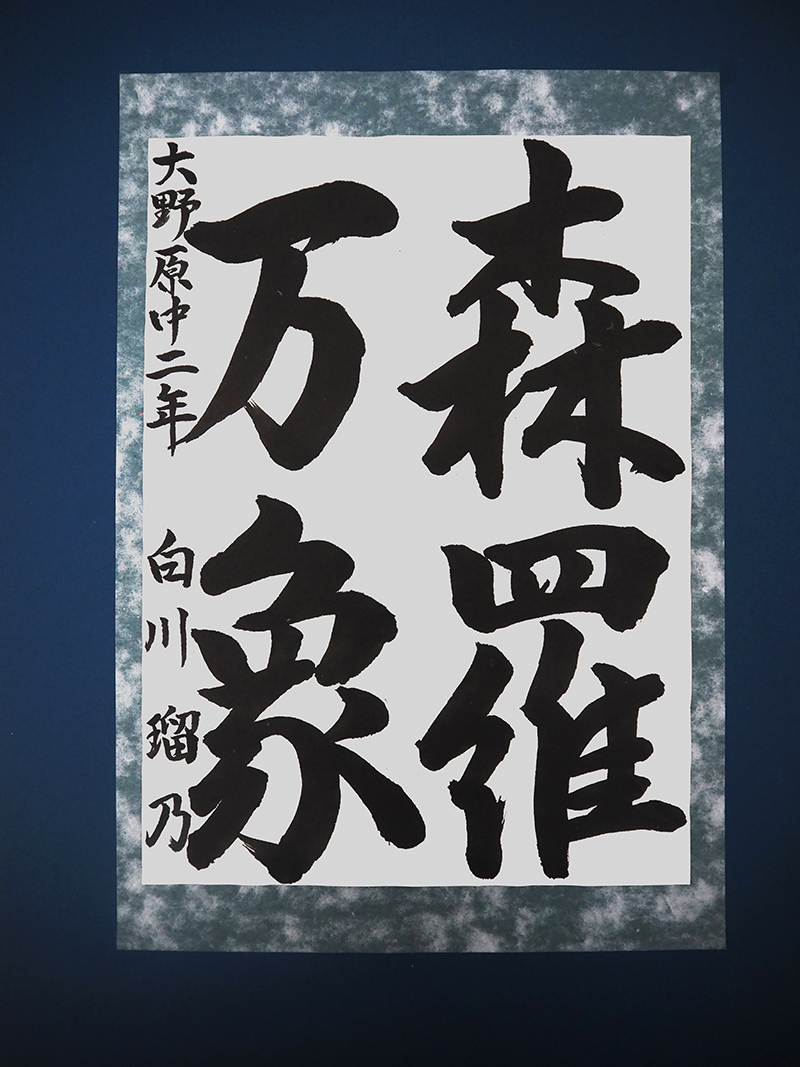 森羅
万象
大野原中二年 白川 瑠乃